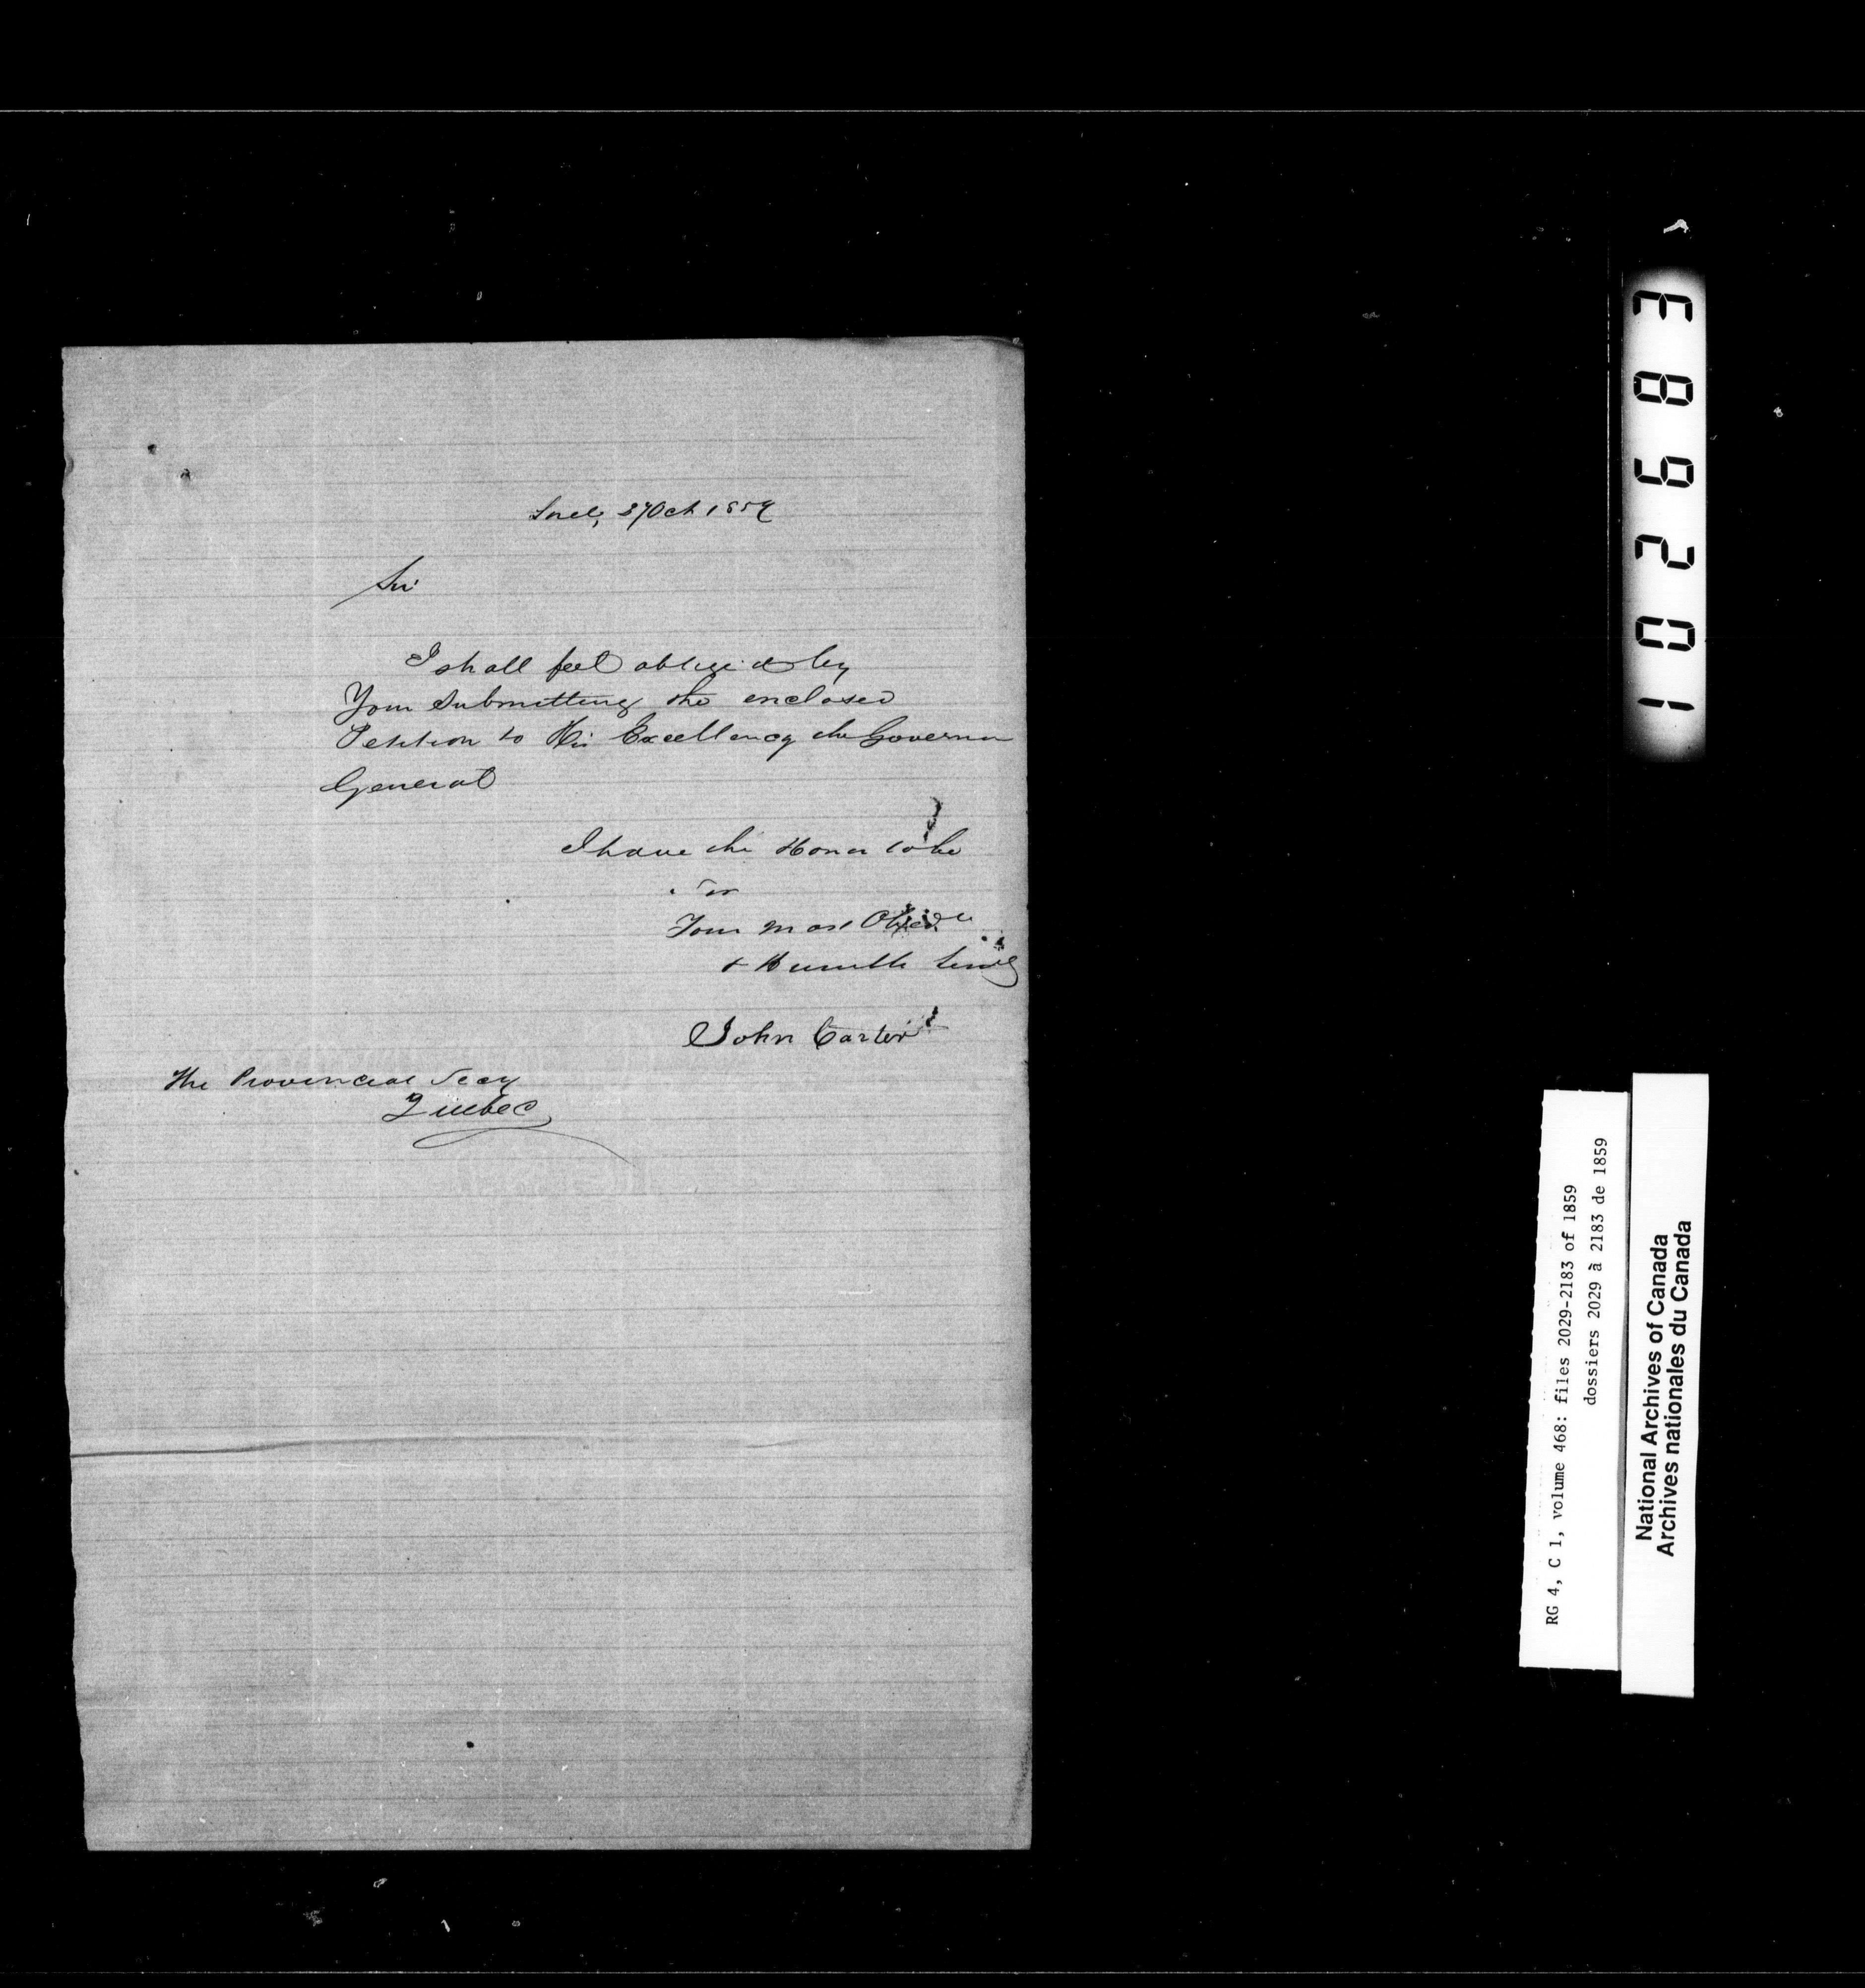 Sorel, 27 Oct 1859
Sir
I shall feel obliged by
Your Submitting the enclosed
Petition to His Excellency the Governor
General
I have the Honor to be
Sir
Your most Obed
& Humble Servt
John Carter
The Provincial Secy
Quebec
102683
RG 4, C 1, volume 468: files 2029-2183 of 1859
dossiers 2029 à 2183 de 1859
National Archives of Canada
Archives nationales du Canada